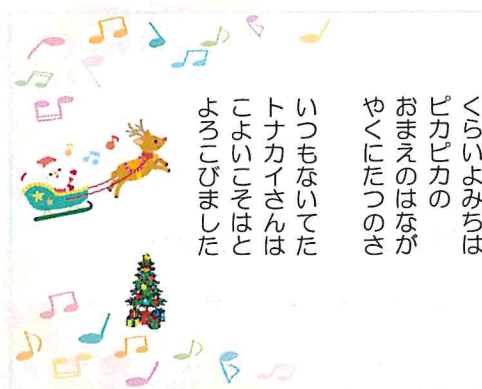 くらいよみちは
ピカピカの
おまえのはなが
やくにたつのさ
いつもないてた
トナカイさんは
こよいこそはと
よろこびました